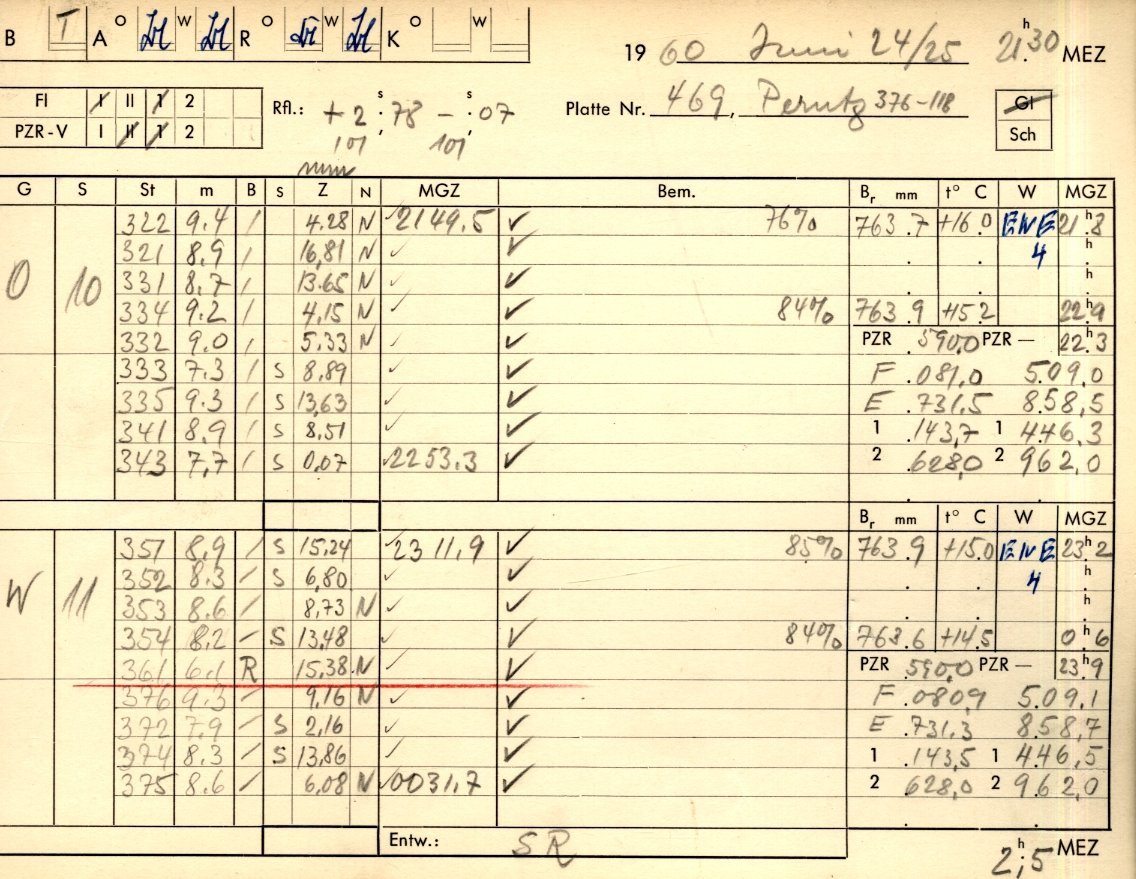 B T A O W R O W K O W
19 60 Juni 24/25 21h.30 MEZ
FI I II 1 2
Rfl.: + 2s.78 - s.07
Platte Nr. 469, Perutz 376-118
GI
PZR-V I II 1 2
101 101
Sch
mm
G S St m B S Z N MGZ Bem. Br mm t° C W MGZ
322 9.4 / 4.28 N 2149.5 ✓ 76% 763.7 +16.0 ENE 21h.8
321 8.9 / 16,81 N ✓ ✓ 4 h
O 10 331 8.7 / 13.65 N ✓ ✓ h
334 9.2 / 4,15 N ✓ ✓ 84% 763.9 +15.2 22h.9
332 9.0 / 5.33 N ✓ ✓ PZR .590,0 PZR — 22h.3
333 7.3 / S 8,89 ✓ ✓ F .081,0 5.09,0
335 9.3 / S 13,63 ✓ ✓ E .731,5 8.58,5
341 8.9 / S 8,51 ✓ ✓ 1 .143,7 1 4.46,3
343 7,7 / S 0,07 2253.3 ✓ 2 .628,0 2 9.62,0
Br mm t° C W MGZ
357 8,9 / S 15,24 2311,9 ✓ 85% 763.9 +15.0 ENE 23h.2
352 8.3 / S 6,80 ✓ ✓ 4 h
W 11 353 8.6 / 8,73 N ✓ ✓ h
354 8.2 / S 13,48 ✓ ✓ 84% 763.6 +14.5 0h.6
361 6.1 R 15.38 N ✓ ✓ PZR .590,0 PZR — 23h.9
376 9.3 / 9,16 N ✓ ✓ F .080,9 5.09,1
372 7.9 / S 2,16 ✓ ✓ E .731,3 8.58,7
374 8.3 / S 13,86 ✓ ✓ 1 .143,5 1 4.46,5
375 8.6 / 6,08 N 0031,7 ✓ 2 628,0 2 9.62,0
Entw.: SR
2h;5 MEZ